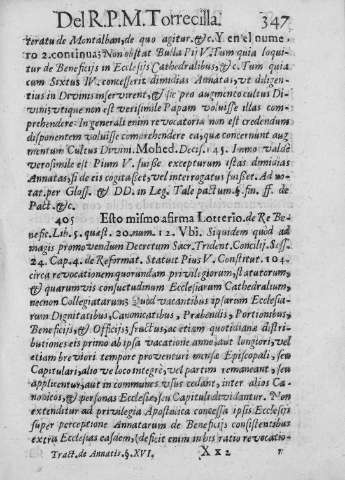 Del R.P.M. Torrecilla. 347
teratu de Montalban, de quo agitur. &c. Y en el nume-
ro 2. continua; Non obstat Bulla Pii V. Tum quia loqui-
tur de Beneficijs in Ecclesijs Cathedralibus, &c. Tum quia
cum Sixtus IV. concesserit dimidias Annatas, vt diligen-
tius in Divinis inservirent, & sic pro augmento cultus Di-
vini; vtique non est verisimile Papam voluisse illas com-
prehendere: In generali enim revocatoria non est credendum
disponentem voluisse comprehendere ea, quæ concernunt aug-
mentum Cultus Divini. Mohed. Decis. 145. Immo valde
verosimile est Pium V. fuisse excepturum istas dimidias
Annatas, si de eis cogitasset, vel interrogatus fuisset. Ad no-
tar. per Gloss. & DD. in Leg. Tale pactum. §. fin. ff. de
Pact. &c.
405 Esto mismo afirma Lotterio. de Re Be-
nefic. Lib. 5. quæst. 20. num. 12. Vbi. Siquidem quod ad
magis promovendum Decretum Sacr. Trident. Concilij. Sess.
24. Cap. 4. de Reformat. Statuit Pius V. Constitut. 104.
circa revocationem quorundam privilegiorum, statutorum,
& quarumvis consuetudinum Ecclesiarum Cathedralium,
necnon Collegiatarum; Quod vacantibus ipsarum Ecclesia-
rum Dignitatibus, Canonicatibus, Præbendis, Portionibus,
Beneficijs, & Officijs, fructus, ac etiam quotidianæ distri-
butiones eis primo ab ipsa vacatione anno, aut longiori, vel
etiam breviori tempore proventuri mensæ Episcopali, seu
Capitulari, alio ve loco integrè, vel partim remaneant, seu
applicentur, aut in communes vsus cedant, inter alios Ca-
nonicos, & personas Ecclesiæ, seu Capituli dividantur. Non
extenditur ad privilegia Apostolica concessa ipsis Ecclesijs
super perceptione Annatarum de Beneficijs consistentibus
extra Ecclesias easdem, (deficit enim in his ratio revocatio-
Tract. de Annatis. §. XVI. Xx2